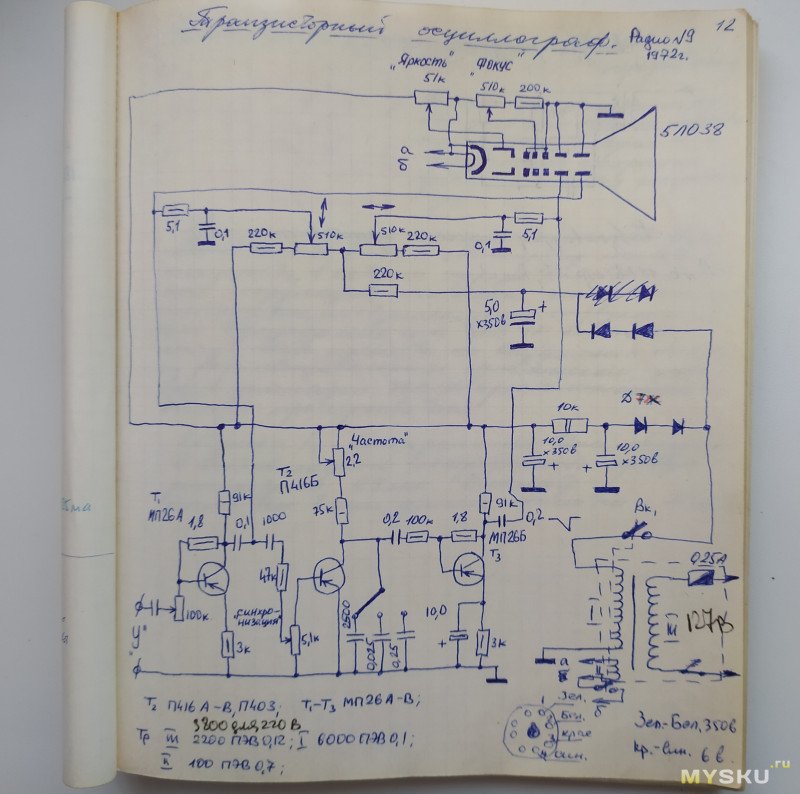 Транзисторный осциллограф.
12
Радио №9
1972г.
"Яркость"
51к
"Фокус"
510к
200к
5ЛО38
а
б
5,1
0,1
220к
510к
510к
220к
0,1
5,1
220к
5,0
х350в
+
Д7ж
10к
10,0
х350в
+
10,0
х350в
+
"Частота"
2,2
Т2
П416Б
Т1
МП26А
91к
1,8
0,1
1000
75к
0,2
100к
1,8
91к
0,2
МП26Б
Т3
Вк1
0,25А
47к
100к
"Синхро-
низация"
5,1к
3к
"У"
2500
0,025
0,25
10,0
+
3к
127в
III
а
б
Т2 П416А-В, П403; Т1-Т3 МП26А-В;
3800 для 220В
Тр III 2200 ПЭВ 0,12; I 6000 ПЭВ 0,1;
II 100 ПЭВ 0,7;
1
Зел.
Бел.
Крас
Син.
Зел-Бел. 350в
Кр.-Син. 6в.
MYSKU.ru